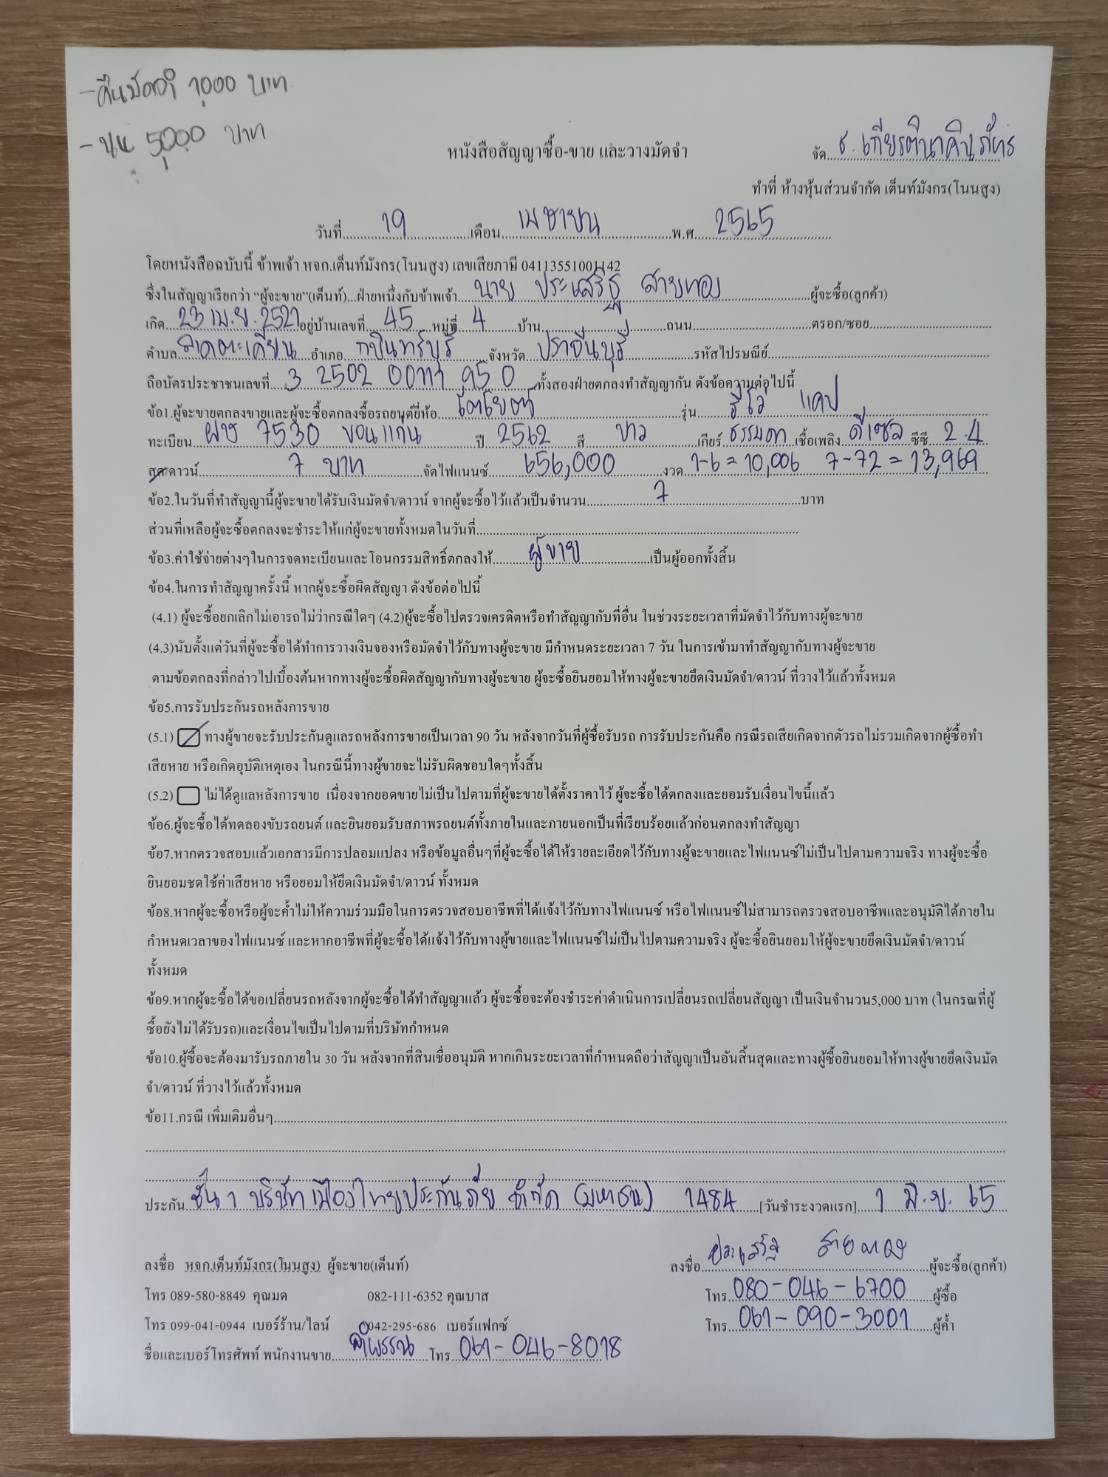 - คืนมัดจำ 1,000 บาท
- ขน 5,000 บาท
หนังสือสัญญาซื้อ-ขาย และวางมัดจำ
จัด ธ. เกียรตินาคินภัทร
ทำที่ ห้างหุ้นส่วนจำกัด เต็นท์มังกร(โนนสูง)
วันที่ 19 เดือน เมษายน พ.ศ. 2565
โดยหนังสือฉบับนี้ ข้าพเจ้า หจก.เต็นท์มังกร(โนนสูง) เลขเสียภาษี 0411355100142
ซึ่งในสัญญาเรียกว่า "ผู้จะขาย"(เต็นท์)...ฝ่ายหนึ่งกับข้าพเจ้า นาย ประเสริฐ สายทอง ผู้จะซื้อ(ลูกค้า)
เกิด 23 เม.ย. 2521 อยู่บ้านเลขที่ 45 หมู่ที่ 4 บ้าน ถนน ตรอก/ซอย
ตำบล ลาดตะเคียน อำเภอ กบินทร์บุรี จังหวัด ปราจีนบุรี รหัสไปรษณีย์
ถือบัตรประชาชนเลขที่ 3 2502 00111 95 0 ทั้งสองฝ่ายตกลงทำสัญญากัน ดังข้อความต่อไปนี้
ข้อ1.ผู้จะขายตกลงขายและผู้จะซื้อตกลงซื้อรถยนต์ยี่ห้อ โตโยต้า รุ่น รีโว่ แคป
ทะเบียน ผษ 7530 ขอนแก่น ปี 2562 สี ขาว เกียร์ ธรรมดา เชื้อเพลิง ดีเซล ซีซี 2.4
สด/ดาวน์ 7 บาท จัดไฟแนนซ์ 656,000 งวด 1-6 = 10,006 7-72 = 13,969
ข้อ2.ในวันที่ทำสัญญานี้ผู้จะขายได้รับเงินมัดจำ/ดาวน์ จากผู้จะซื้อไว้แล้วเป็นจำนวน 7 บาท
ส่วนที่เหลือผู้จะซื้อตกลงจะชำระให้แก่ผู้จะขายทั้งหมดในวันที่
ข้อ3.ค่าใช้จ่ายต่างๆในการจดทะเบียนและโอนกรรมสิทธิ์ตกลงให้ ผู้ขาย เป็นผู้ออกทั้งสิ้น
ข้อ4.ในการทำสัญญาครั้งนี้ หากผู้จะซื้อผิดสัญญา ดังข้อต่อไปนี้
(4.1) ผู้จะซื้อยกเลิกไม่เอารถไม่ว่ากรณีใดๆ (4.2)ผู้จะซื้อไปตรวจเครดิตหรือทำสัญญากับที่อื่น ในช่วงระยะเวลาที่มัดจำไว้กับทางผู้จะขาย
(4.3)นับตั้งแต่วันที่ผู้จะซื้อได้ทำการวางเงินจองหรือมัดจำไว้กับทางผู้จะขาย มีกำหนดระยะเวลา 7 วัน ในการเข้ามาทำสัญญากับทางผู้จะขาย
ตามข้อตกลงที่กล่าวไปเบื้องต้นหากทางผู้จะซื้อผิดสัญญากับทางผู้จะขาย ผู้จะซื้อยินยอมให้ทางผู้จะขายยึดเงินมัดจำ/ดาวน์ ที่วางไว้แล้วทั้งหมด
ข้อ5.การรับประกันรถหลังการขาย
(5.1) ทางผู้ขายจะรับประกันดูแลรถหลังการขายเป็นเวลา 90 วัน หลังจากวันที่ผู้ซื้อรับรถ การรับประกันคือ กรณีรถเสียเกิดจากตัวรถไม่รวมเกิดจากผู้ซื้อทำ
เสียหาย หรือเกิดอุบัติเหตุเอง ในกรณีนี้ทางผู้ขายจะไม่รับผิดชอบใดๆทั้งสิ้น
(5.2) ไม่ได้ดูแลหลังการขาย เนื่องจากยอดขายไม่เป็นไปตามที่ผู้จะขายได้ตั้งราคาไว้ ผู้จะซื้อได้ตกลงและยอมรับเงื่อนไขนี้แล้ว
ข้อ6.ผู้จะซื้อได้ทดลองขับรถยนต์ และยินยอมรับสภาพรถยนต์ทั้งภายในและภายนอกเป็นที่เรียบร้อยแล้วก่อนตกลงทำสัญญา
ข้อ7.หากตรวจสอบแล้วเอกสารมีการปลอมแปลง หรือข้อมูลอื่นๆที่ผู้จะซื้อได้ให้รายละเอียดไว้กับทางผู้จะขายและไฟแนนซ์ไม่เป็นไปตามความจริง ทางผู้จะซื้อ
ยินยอมชดใช้ค่าเสียหาย หรือยอมให้ยึดเงินมัดจำ/ดาวน์ ทั้งหมด
ข้อ8.หากผู้จะซื้อหรือผู้จะค้ำไม่ให้ความร่วมมือในการตรวจสอบอาชีพที่ได้แจ้งไว้กับทางไฟแนนซ์ หรือไฟแนนซ์ไม่สามารถตรวจสอบอาชีพและอนุมัติได้ภายใน
กำหนดเวลาของไฟแนนซ์ และหากอาชีพที่ผู้จะซื้อได้แจ้งไว้กับทางผู้ขายและไฟแนนซ์ไม่เป็นไปตามความจริง ผู้จะซื้อยินยอมให้ผู้จะขายยึดเงินมัดจำ/ดาวน์
ทั้งหมด
ข้อ9.หากผู้จะซื้อได้ขอเปลี่ยนรถหลังจากผู้จะซื้อได้ทำสัญญาแล้ว ผู้จะซื้อจะต้องชำระค่าดำเนินการเปลี่ยนรถเปลี่ยนสัญญา เป็นเงินจำนวน5,000 บาท (ในกรณที่ผู้
ซื้อยังไม่ได้รับรถ)และเงื่อนไขเป็นไปตามที่บริษัทกำหนด
ข้อ10.ผู้ซื้อจะต้องมารับรถภายใน 30 วัน หลังจากที่สินเชื่ออนุมัติ หากเกินระยะเวลาที่กำหนดถือว่าสัญญาเป็นอันสิ้นสุดและทางผู้ซื้อยินยอมให้ทางผู้ขายยึดเงินมัด
จำ/ดาวน์ ที่วางไว้แล้วทั้งหมด
ข้อ11.กรณี เพิ่มเติมอื่นๆ
ประกัน ชั้น 1 บริษัท เมืองไทยประกันภัย จำกัด (มหาชน) 1484 [วันชำระงวดแรก] 1 มิ.ย. 65
ลงชื่อ หจก.เต็นท์มังกร(โนนสูง) ผู้จะขาย(เต็นท์) ลงชื่อ ประเสริฐ สายทอง ผู้จะซื้อ(ลูกค้า)
โทร 089-580-8849 คุณมด 082-111-6352 คุณบาส โทร. 080-046-6700 ผู้ซื้อ
โทร 099-041-0944 เบอร์ร้าน/ไลน์ 042-295-686 เบอร์แฟกซ์ โทร. 061-090-3001 ผู้ค้ำ
ชื่อและเบอร์โทรศัพท์ พนักงานขาย ลำพรรณ โทร. 061-046-8018